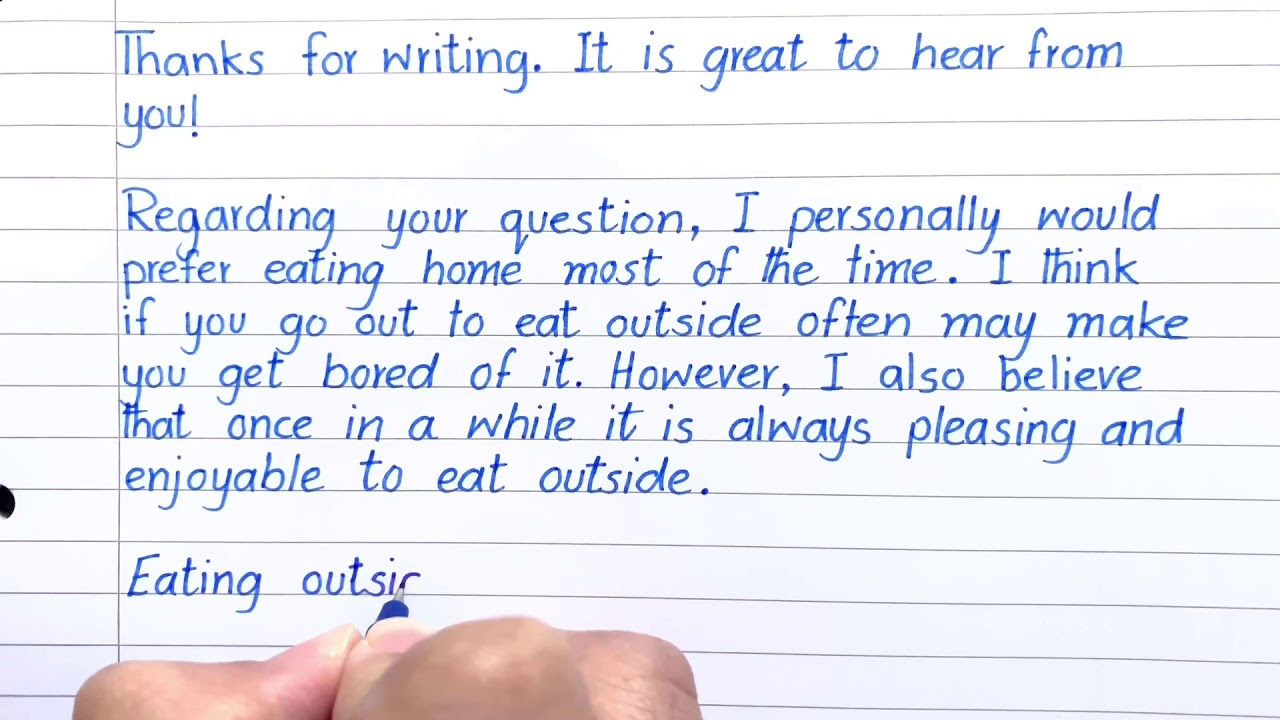 Thanks for writing. It is great to hear from
you!
Regarding your question, I personally would
prefer eating home most of the time. I think
if you go out to eat outside often may make
you get bored of it. However, I also believe
that once in a while it is always pleasing and
enjoyable to eat outside.
Eating